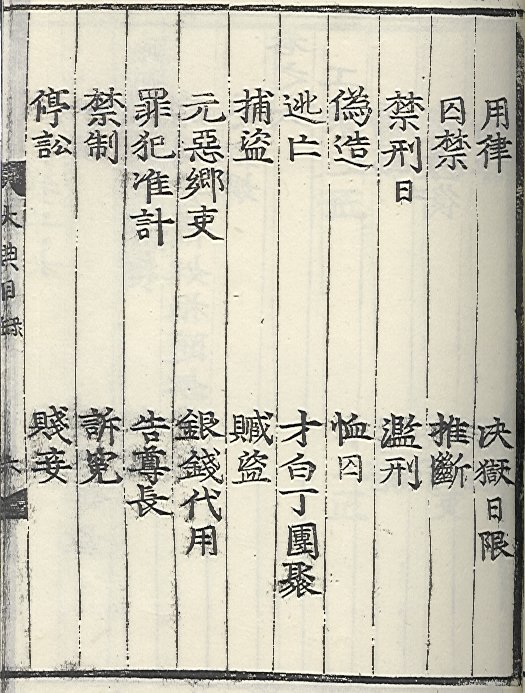 用律　决獄日限
囚禁　推斷
禁刑日　濫刑
偽造　恤囚
逃亡　才白丁團聚
捕盜　贓盜
元惡鄕吏　銀錢代用
罪犯准計　告尊長
禁制　訴冤
停訟　賤妾
大典目録　六